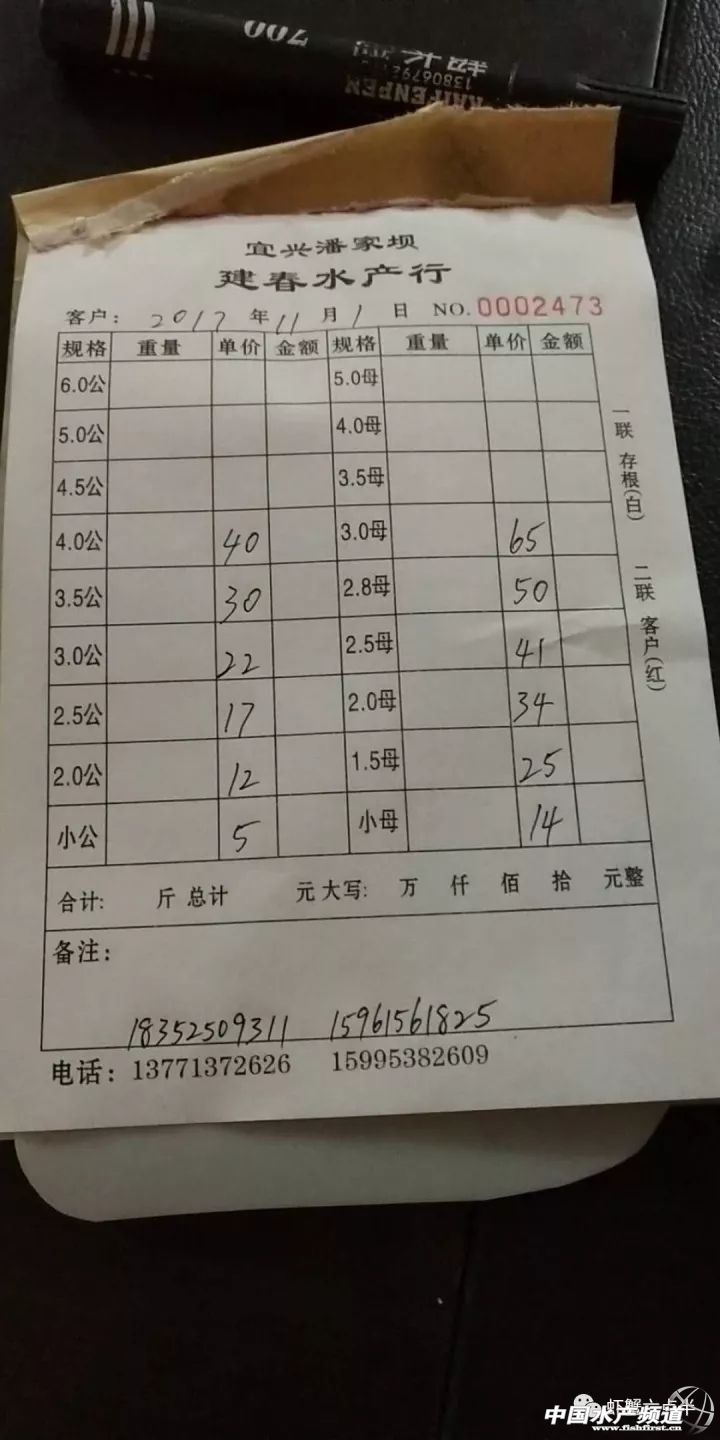 700
KAIFENPEN
宜兴潘家坝
建春水产行
客户： 2017 年 11 月 1 日 NO. 0002473
规格 重量 单价 金额 规格 重量 单价 金额
6.0公 5.0母
5.0公 4.0母
4.5公 3.5母
4.0公 40 3.0母 65
3.5公 30 2.8母 50
3.0公 22 2.5母 41
2.5公 17 2.0母 34
2.0公 12 1.5母 25
小公 5 小母 14
合计: 斤 总计 元 大写: 万 仟 佰 拾 元整
备注：
18352509311 15961561825
电话：13771372626 15995382609
一联 存根(白)
二联 客户(红)
虾蟹六点半
中国水产频道
www.fishfirst.cn